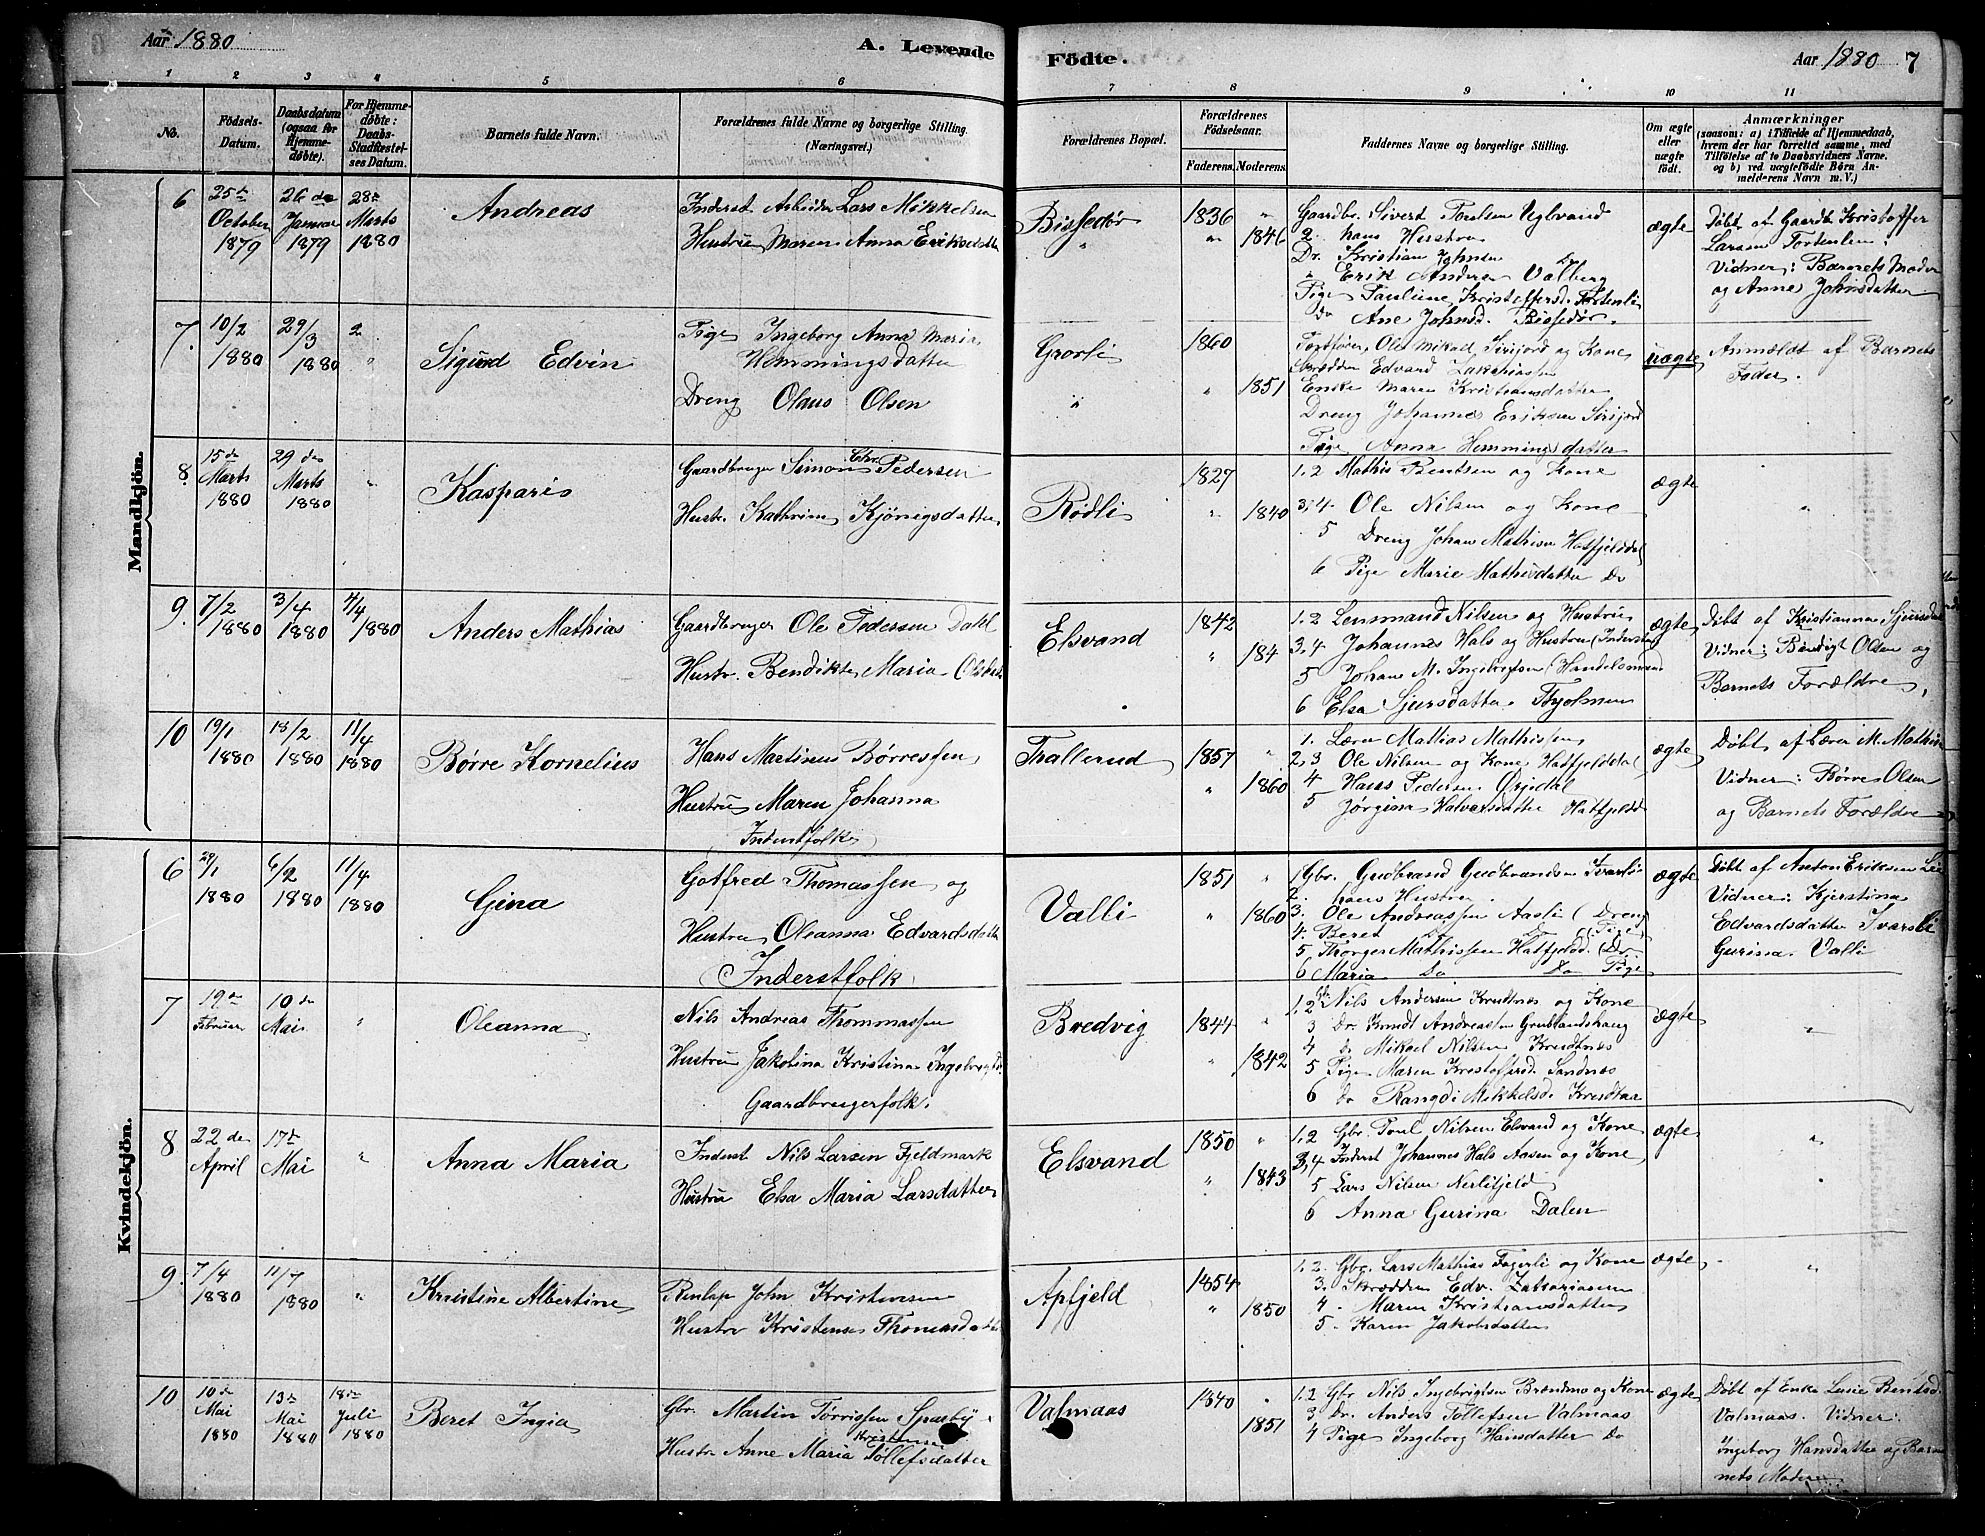 Aar 1880
A. Levende Fødte.
Aar 1880 7
1 2 3 4 5 6 7 8 9 10 11
No.
Fødsels-Datum.
Daabsdatum (ogsaa for Hjemme-døbte).
For Hjemme-døbte: Daabs-Stadfæstel-ses Datum.
Barnets fulde Navn.
Forældrenes fulde Navne og borgerlige Stilling.
(Næringsvei.)
Forældrenes Bopæl.
Forældrenes Fødselsaar.
Faderens. Moderens.
Faddernes Navne og borgerlige Stilling.
Om ægte eller uægte født.
Anmærkninger
(saasom: a) i Tilfælde af Hjemmedaab,
hvem der har forrettet samme, med
Tilføielse af to Daabsvidners Navne.
og b) ved uægtefødte Børn An-
melderens Navn m. V.)
Mandkjön.
6
25de October 1879
26de Januar 1879
28de Marts 1880
Andreas
Inderst Arbeider Lars Mikkelsen
Hustru Maren Anna Eriksdatter
Bissedør
1836 "
" 1846
Gaardbr. Sivert Paulsen Uglvand
2. hans Hustru
Dr. Kristian Johnsen Do
" Erik Andersen Valberg
Pige Pauline Kristoffersd. Fortenli
Do Ane Johnsd. Bissedør.
ægte
Døbt af Gaardb Kristoffer
Larsen Fortenlien.
Vidner: Barnets Moder
og Anne Johnsdatter
7.
10/2 1880
29/3 1880
"
Sigurd Edvin
Pige Ingeborg Anna Maria
Hemmingsdatter
Dreng Olaus Olsen
Grovli
1860
" 1851
Ole Mikal Sirijord og Kone
Skrædder Edvard Zakariasen
Enke Maren Kristiansdatter
Dreng Johannes Eriksen Sirijord
Pige Anna Hemmingsdatter
uægte
Anmeldt af Barnets
Fader.
8.
15de Marts 1880
29de Marts 1880
"
Kasparis
Gaardbruger Simon Chr. Pedersen
Hustr. Kathrina Kjönigsdatter
Rödli
1827
" 1840
1,2 Mathis Bentsen og Kone
3,4 Ole Nilsen og Kone
5 Dreng Johan Mathisen Hatfjelddal
6 Pige Marie Mathisdatter Do
ægte
"
9.
7/2 1880
3/4 1880
4/4 1880
Anders Mathias
Gaardbruger Ole Pedersen Dahl
Hustr. Bendikte Maria
Elsvand
1842
" 184
1,2 Lensmand Nilsen og Hustru
3,4 Johannes Hals og Hustru (Inderst)
5 Johan M. Ingebrigtsen (Handelsmand
6 Elsa Sjursdatter Tjolmen
ægte
Døbt af Kristianna Sjursdr
Vidner: Bendigt Olsen og
Barnets Forældre,
10
19/1 1880
18/2 1880
11/4 1880
Børre Kornelius
Hans Martinus Børressen
Hustru Maren Johanna
Inderstfolk
Trallerud
1857 "
" 1860
1. Lærer Mathias Mathissen
2,3 Ole Nilsen og Kone Hatfjelddal
4 Hans Pedersen Ørjedal
5 Jørgina Halvorsdatter Hatfjeldd
ægte
Døbt af Lærer M. Mathis
Vidner: Børre Olsen
og Barnets Forældre
Kvindekjön.
6
29/1 1880
6/2 1880
11/4 1880
Gina
Gotfred Thomassen og
Hustru Oleanna Edvardsdatter
Inderstfolk
Valli
1851 "
" 1860
1. Gbr. Gudbrand Gudbrandsen Ivarsli
2. hans Hustru
3. Ole Andreassen Aasli (Dreng
4. Beret Do (Pige)
5. Thorger Mathissen Hatfjeldd. (Dr.
6 Maria Do Do Pige
ægte
Døbt af Anton Eriksen
Vidner: Kjerstina
Edvardsdatter Ivarsli
Gurina Valli
7
19de Februar
10de Mai
"
Oleanna
Nils Andreas Thommassen
Hustru Jakobina Kristina Ingebrigtsd.
Gaardbrugerfolk.
Bredvig
1844 "
" 1842
1,2 Gbr Nils Andersen Krudtnes og Kone
3 Dr. Knudt Andreassen Grublandshaug
4 do Mikael Nilsen Krudtnæs
5 Pige Maren Kristoffersd. Sandnæs
6 do Rangdi Mikkelsd.
ægte
"
8
22de April
17de Mai
"
Anna Maria
Inderst Nils Larsen Fjeldmark
Hustru Elsa Maria Larsdatter
Elsvand
1850 "
" 1843
1,2 Gbr. Poul Nilsen Elsvand og Kone
3,4 Inderst Johannes Hals Aasen og Kone
5 Lars Nilsen Nerlifjeld
6 Anna Gurina Dalen
ægte
"
9.
7/4 1880
11/7 1880
"
Kristine Albertine
Renlap John Kristensen
Hustru Kristense Thomasdatter
Apfjeld
1854
" 1850
1,2. Gbr. Lars Mathias Fagerli og Kone
3. Skrædder Edv. Zakariasen
4. Maren Kristiansdatter
5. Karen Jakobsdatter
ægte
"
10
10de Mai 1880
13de Mai 1880
18de Juli 1880
Beret Ingia
Gbr. Martin Tørrissen Sparby
Hustr Anne Maria Kristense Tollefsdatter
Valmaas
1840 "
1851
1,2 Gbr Nils Ingebrigtsen Brændmo og Kone
3 Dr. Anders Tollefsen Valmaas
4 Pige Ingeborg Hansdatter Do
ægte
Døbt af Enke Lusie Bentsd.
Valmaas. Vidner:
Ingeborg Hansdatter og Bar-
nets Moder